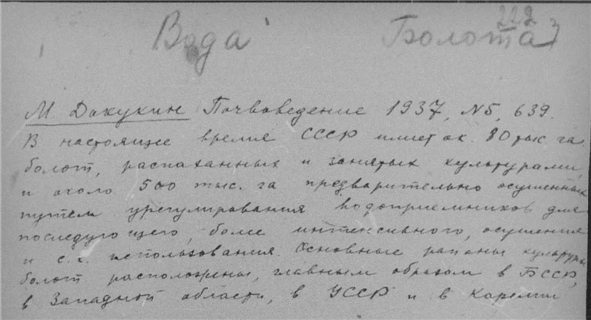 222
Вода Болота
М. Докукин Почвоведение 1937, N5, 639.
В настоящее время СССР имеет ок. 80 тыс га
болот, распаханных и занятых культурами,
и около 500 тыс. га предварительно осушенных
путем урегулирования водоприемников для
последующего, более интенсивного, осушения
и с.х. использования. Основные районы культуры
болот расположены, главным образом в БССР,
в Западной области, в УССР и в Карелии